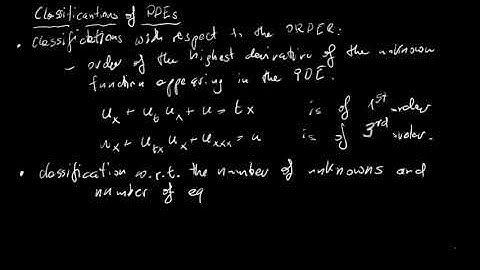 Classifications of PDEs
• Classifications with respect to the ORDER:
- order of the highest derivative of the unknown
function appearing in the PDE.
u_x + u_t u_x + u = t x is of 1st-order
u_x + u_tx u_x + u_xxx = u is of 3rd-order.
• classification w.r.t. the number of unknowns and
number of eq